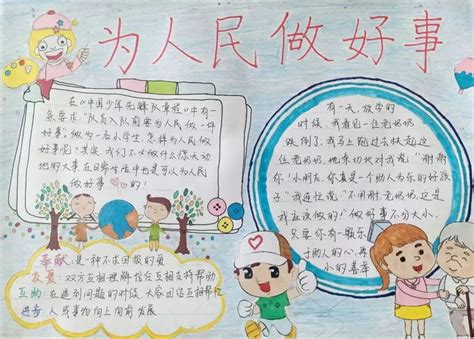 为人民做好事
在《中国少年先锋队章程》中有
一条要求：“队员入队前要为人民做一件
好事”。做为一名小学生，怎样为人民做
好事呢？其实，我们不必做什么惊天动
地的大事，在日常生活中也是可以为人民
做好事的！
有一天，放学的
时候，我看见一位老奶奶
跌倒了，我马上跑过去扶起这
位老奶奶。她亲切地对我说：“谢谢
你！小朋友，你真是个助人为乐的好孩
子。”我连忙说：“不用谢，老奶奶，这是
我应该做的！”做好事不分大小，
只要你有一颗乐
于助人的心，再
小的善举
奉献：是一种不求回报的爱
友爱：双方互相理解信任互相支持帮助
互助：在遇到问题的时候，大家团结互相帮忙
进步：人或事物向上向前发展